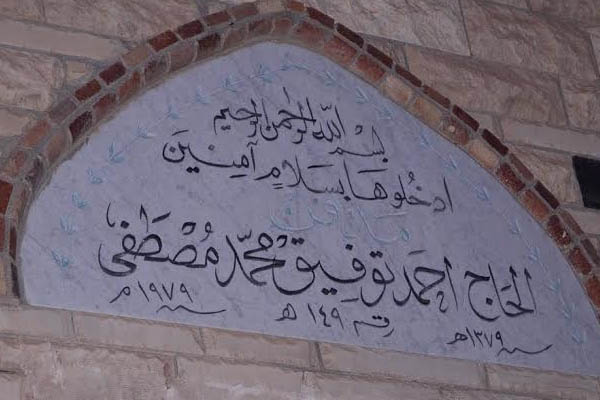 بسم الله الرحمن الرحيم
ادخُلوهَا بسَلَامٍ آمِنِينَ
مدفن
الحَاج احمَد توفِيق محمّد مُصْطَفى
سنة ١٣٧٩هـ رقم ١٤٩ هـ سنة ١٩٧٩م